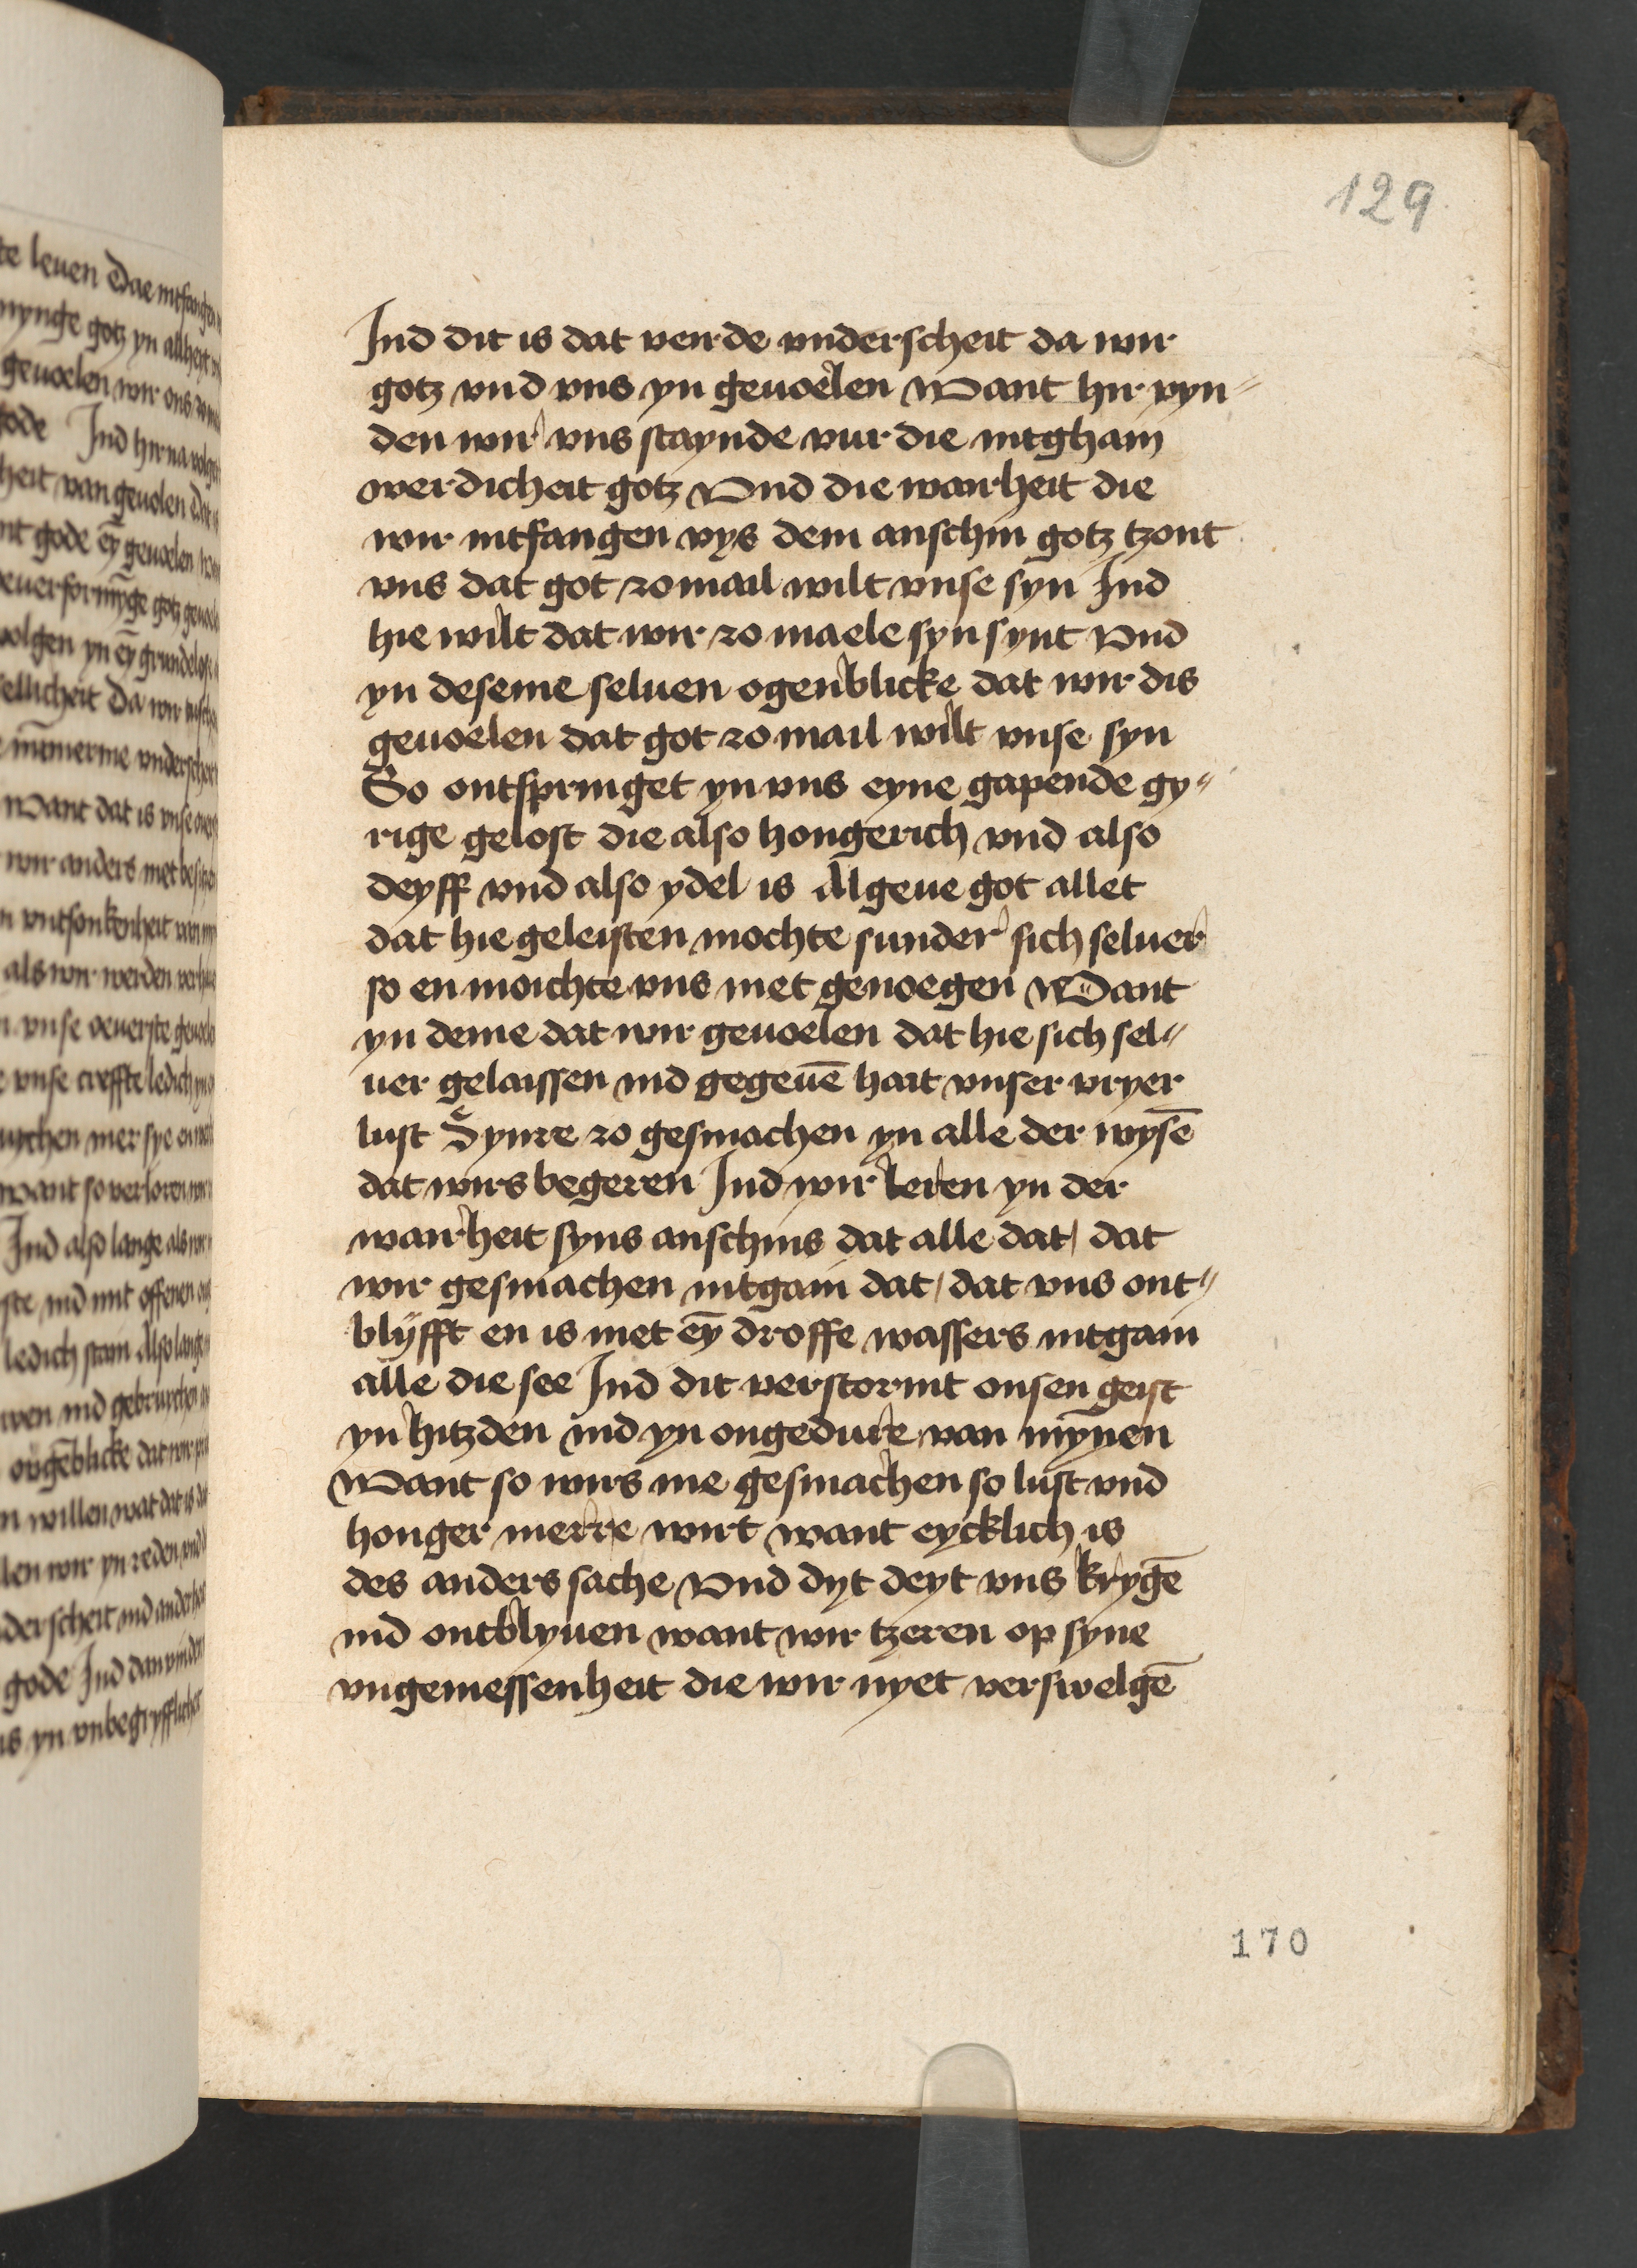 129
Ind dit is dat veirde vnderscheit da wir
gotz vnd vns yn geuoelen Want hir vyn-
den wir vns staynde vur die intghain
werdicheit gotz Vnd die wairheit die
wir intfangen vys dem anschin gotz tzont
vns dat got zo mail wilt vnse syn Ind
hie wilt dat wir zo maele syn synt Vnd
yn deseme seluen ogenblicke dat wir dis
geuoelen dat got zo mail wilt vnse syn
So ontspringet yn vns eyne gapende gy-
rige gelost die also hongerich vnd also
deyff vnd also ydel is Al geue got allet
dat hie geleisten mochte sunder sich seluer
so en moichte vns niet genoegen Want
yn deme dat wir geuoelen dat hie sich sel-
uer gelaissen ind gegeuē hait vnser vryer
lust Synre zo gesmachen yn alle der wysē
dat wirs begeren Ind wir leren yn der
wairheit syns anschins dat alle dat / dat
wir gesmachen intgain dat / dat vns ont-
blyfft en is niet eȳ droffe wassers intgain
alle die see Ind dit verstormt onsen geist
yn hitzden ind yn ongedure van mȳnen
Want so wirs me gesmachen so lust vnd
honger merre wirt want eycklich is
des anders sache Vnd dyt deyt vns krygē
ind ontblyuen want wir tzeren op syne
vngemessenheit die wir nyet verswelgē
170